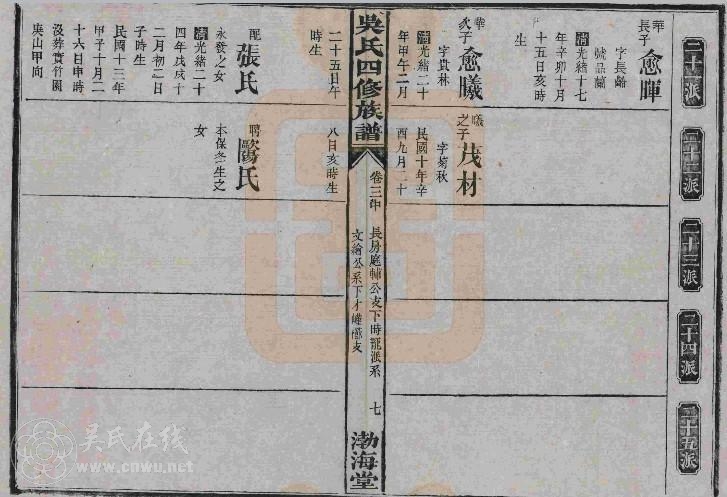 二十一派
二十二派
二十三派
二十四派
二十五派
華長子
愈暉
字長齡
號品蘭
清光緒十七
年辛卯十月
十五日亥時
生
華次子
愈曦
字貴林
清光緒二十
年甲午二月
二十五日午
時生
配
張氏
永發之女
清光緒二十
四年戊戌十
二月初二日
子時生
民國十三年
甲子十月二
十六日申時
沒葬實竹園
庚山甲向
曦之子
茂材
字菊秋
民國十年辛
酉九月二十
八日亥時生
聘
歐氏
本保冬生之
女
吳氏四修族譜
卷三
長房庭輔公支下時寵派系
文繪公系下才
支
七
渤海堂
吴氏在线
www.cnwu.net